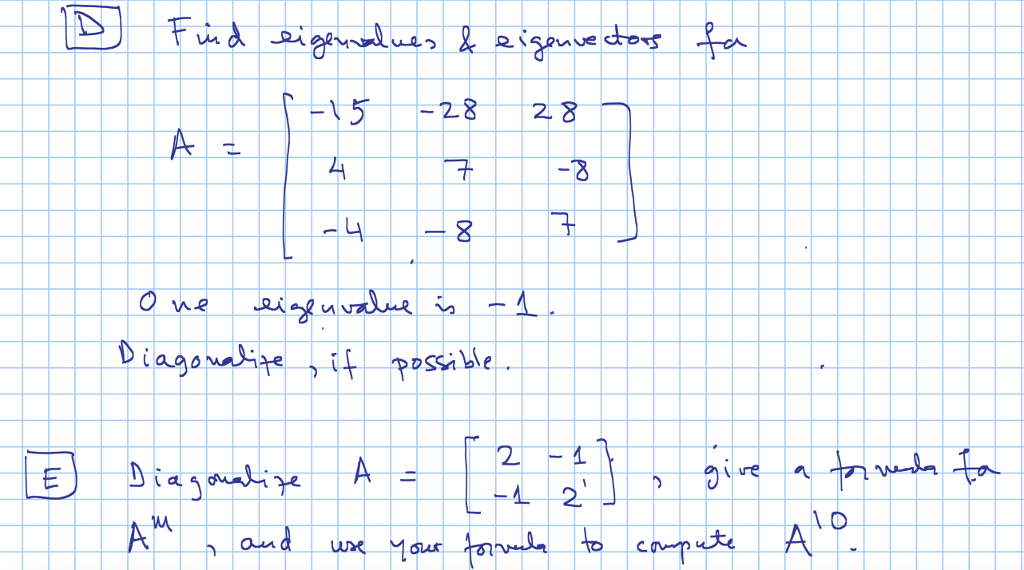 D Find eigenvalues & eigenvectors for
A = [ -15 -28 28
4 7 -8
-4 -8 7 ]
One eigenvalue is -1.
Diagonalize, if possible.
E Diagonalize A = [ 2 -1
-1 2 ], give a formula for
A^m, and use your formula to compute A^10.